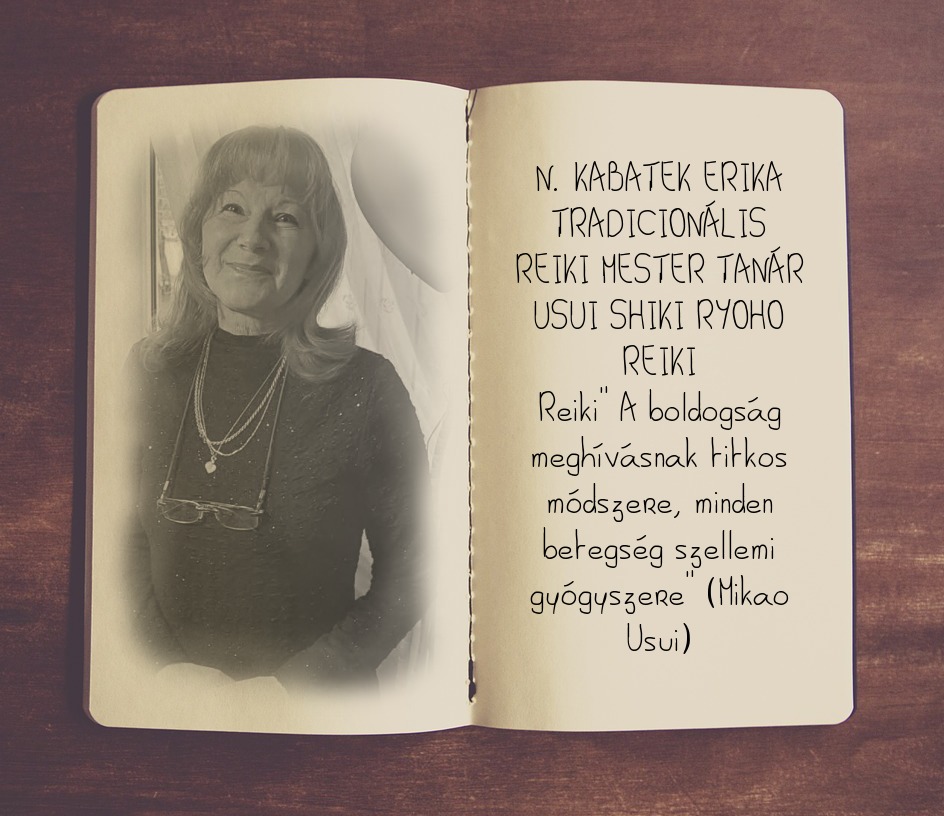 N. KABATEK ERIKA
TRADICIONÁLIS
REIKI MESTER TANÁR
USUI SHIKI RYOHO
REIKI
Reiki" A boldogság
meghívásnak titkos
módszere, minden
betegség szellemi
gyógyszere" (Mikao
Usui)